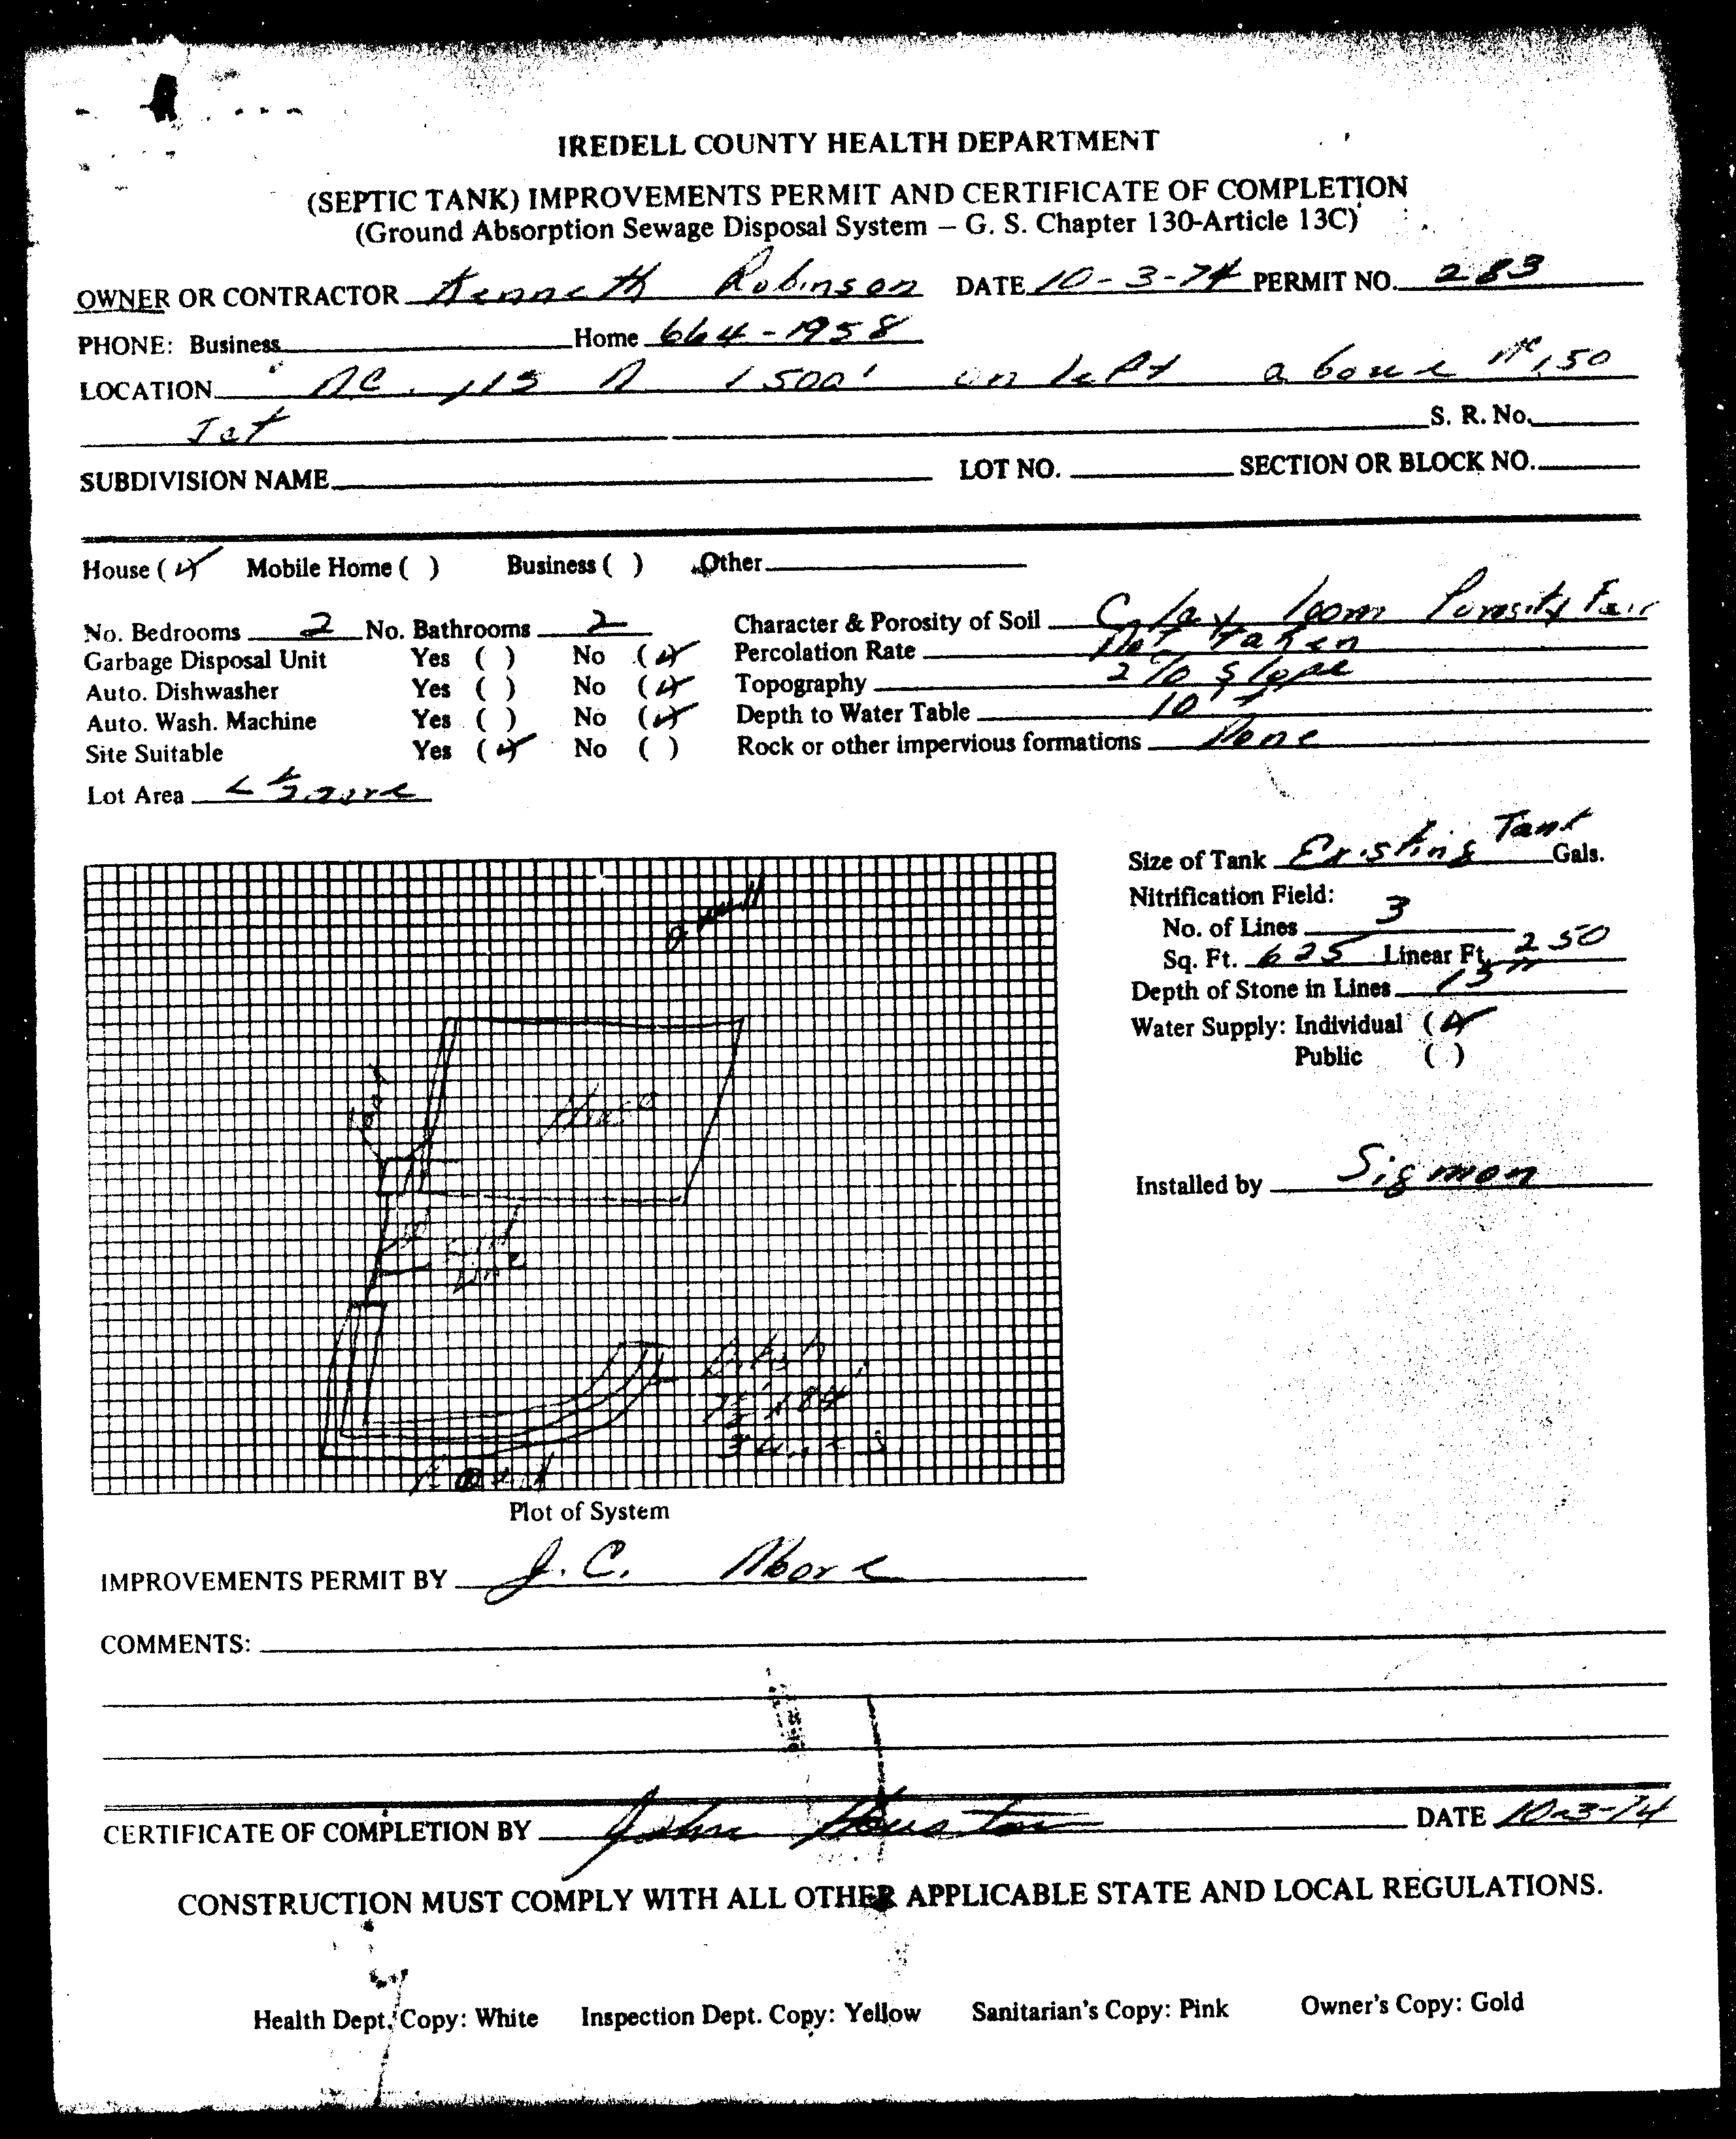 IREDELL COUNTY HEALTH DEPARTMENT
(SEPTIC TANK) IMPROVEMENTS PERMIT AND CERTIFICATE OF COMPLETION
(Ground Absorption Sewage Disposal System – G. S. Chapter 130-Article 13C)
OWNER OR CONTRACTOR Kenneth Robinson DATE 10-3-74 PERMIT NO. 283
PHONE: Business Home 664-1958
LOCATION NC. 115 N 1500' on left above NC 150
Int S. R. No.
SUBDIVISION NAME LOT NO. SECTION OR BLOCK NO.
House (✓) Mobile Home ( ) Business ( ) Other
No. Bedrooms 2 No. Bathrooms 2 Character & Porosity of Soil Clay loom Porosity Fair
Garbage Disposal Unit Yes ( ) No (✓) Percolation Rate Not Taken
Auto. Dishwasher Yes ( ) No (✓) Topography 2% Slope
Auto. Wash. Machine Yes ( ) No (✓) Depth to Water Table 10'+
Site Suitable Yes (✓) No ( ) Rock or other impervious formations None
Lot Area
Size of Tank Existing Tank Gals.
Nitrification Field:
No. of Lines 3
Sq. Ft. 625 Linear Ft. 250
Depth of Stone in Lines 15"
Water Supply: Individual (✓)
Public ( )
Installed by Sigmon
Tank
House
Line
3 Lines
Plot of System
IMPROVEMENTS PERMIT BY J.C. Moore
COMMENTS:
CERTIFICATE OF COMPLETION BY John Houston DATE 10-3-74
CONSTRUCTION MUST COMPLY WITH ALL OTHER APPLICABLE STATE AND LOCAL REGULATIONS.
Health Dept. Copy: White Inspection Dept. Copy: Yellow Sanitarian's Copy: Pink Owner's Copy: Gold